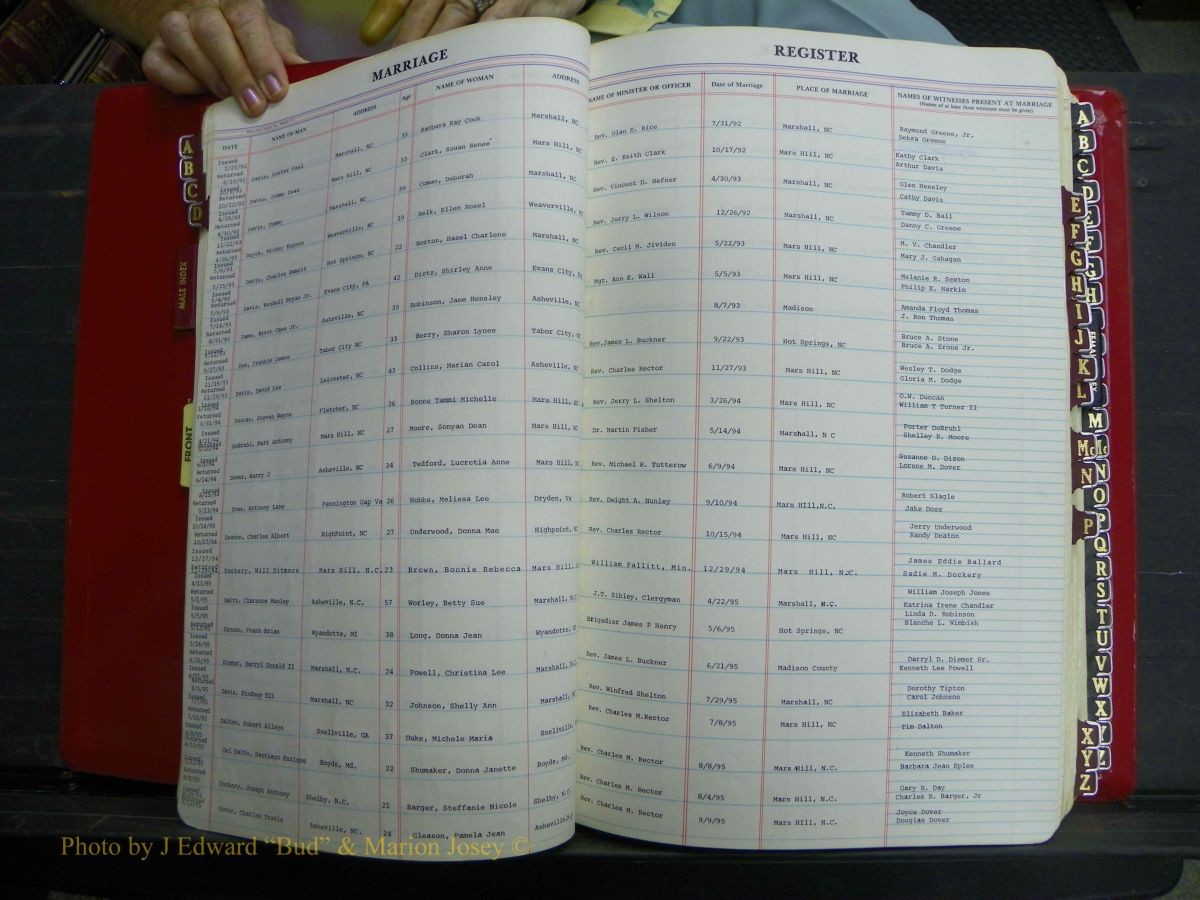 MARRIAGE
REGISTER
DATE NAME OF MAN ADDRESS Age NAME OF WOMAN ADDRESS NAME OF MINISTER OR OFFICER Date of Marriage PLACE OF MARRIAGE NAMES OF WITNESSES PRESENT AT MARRIAGE
(Names of at least three witnesses must be given)
Davis, Lester Paul Marshall, NC 33 Barbara Kay Cook Marshall, NC Rev. Olan E. Rice 7/31/92 Marshall, NC Raymond Greene, Jr.
Debra Greene
Davis, Jimmy Dean Mars Hill, NC 33 Clark, Susan Renee Mars Hill, NC Rev. E. Keith Clark 10/17/92 Mars Hill, NC Kathy Clark
Arthur Davis
Davis, Tommy Marshall, NC 39 Coman, Deborah Marshall, NC Rev. Vincent D. Hefner 4/30/93 Marshall, NC Glen Hensley
Cathy Davis
Duyck, Mickey Eugene Weaverville, NC 19 Helk, Ellen Rosel Weaverville, Rev. Jerry L. Wilson 12/26/92 Marshall, NC Tammy D. Ball
Danny C. Greene
Davis, Charles Emmitt Hot Springs, NC 22 Norton, Hazel Charlene Marshall, NC Rev. Cecil M. Jividen 5/22/93 Mars Hill, NC M. V. Chandler
Mary J. Gahagan
Davis, Wendell Bryan Jr. Evans City, PA 42 Dietz, Shirley Anne Evans City, PA Mgt. Ann K. Wall 5/5/93 Mars Hill, NC Melanie R. Sexton
Philip E. Harkin
Dame, Byron Case Jr. Asheville, NC 35 Robinson, Jane Hensley Asheville, NC 8/7/93 Madison Amanda Floyd Thomas
J. Ron Thomas
Dew, Frankie James Tabor City NC 33 Berry, Sharon Lynee Tabor City, Rev.James L. Buckner 9/22/93 Hot Springs, NC Bruce A. Stone
Bruce A. Srone Jr.
Davis, David Lee Leicester, NC 43 Collins, Marian Carol Asheville, Rev. Charles Rector 11/27/93 Mars Hill, NC Wesley T. Dodge
Gloria M. Dodge
Duncan, Steven Wayne Fletcher, NC 36 Boone Tammi Michelle Mars Hill, NC Rev. Jerry L. Shelton 3/26/94 Mars Hill, NC O.W. Duncan
William T Turner II
DeBruhl, Mark Anthony Mars Hill, NC 27 Moore, Sonyan Dean Mars Hill, NC Dr. Martin Fisher 5/14/94 Marshall, N C Porter DeBruhl
Shelley R. Moore
Dover, Harry J Asheville, NC 34 Tedford, Lucretia Anne Mars Hill, Rev. Michael R. Tutterow 6/9/94 Mars Hill, NC Suzanne D. Dixon
Lorene M. Dover
Doss, Anthony Lane Pennington Gap Va 26 Hobbs, Melissa Lee Dryden, Va Rev. Dwight A. Nunley 9/10/94 Mars Hill,N.C. Robert Slagle
Jake Doss
Deaton, Charles Albert HighPoint, NC 27 Underwood, Donna Mae Highpoint, Rev. Charles Rector 10/15/94 Mars Hill, NC Jerry Underwood
Randy Deaton
Dockery, Will Ditmore Mars Hill, N.C. 23 Brown, Bonnie Rebecca Mars Hill, William Fallitt, Min. 12/29/94 Mars Hill, N.C. James Eddie Ballard
Sadie M. Dockery
William Joseph Jones
Deitz, Clarence Manley Asheville, N.C. 57 Worley, Betty Sue Marshall, N.C. J.T. Sibley, Clergyman 4/22/95 Marshall, N.C. Katrina Irene Chandler
Linda D. Robinson
Duncan, Frank Brian Wyandotte, MI 38 Long, Donna Jean Wyandotte, Brigadier James P Henry 5/6/95 Hot Springs, NC Blanche L. Wimbish
Diemer, Darryl Donald II Marshall, N.C. 24 Powell, Christina Lee Marshall, N.C. Rev. James L. Buckner 6/21/95 Madison County Darryl D. Diemer Sr.
Kenneth Lee Powell
Davis, Sindney Eli Marshall, NC 32 Johnson, Shelly Ann Marshall, Rev. Winfred Shelton 7/29/95 Marshall, NC Dorothy Tipton
Carol Johnson
Dalton, Robert Alleyn Snellville, GA 37 Duke, Michele Maria Snellville, Rev. Charles M.Rector 7/8/95 Mars Hill, NC Elizabeth Baker
Tim Dalton
Del Salto, Santiago Enrique Boyds, Md. 22 Shumaker, Donna Janette Boyds, Md. Rev. Charles M. Rector 8/8/95 Mars Hill, N.C. Kenneth Shumaker
Barbara Jean Eplee
Dockery, Joseph Anthony Shelby, N.C. 21 Barger, Steffanie Nicole Shelby, N.C. Rev. Charles M. Rector 8/4/95 Mars Hill, N.C. Gary R. Day
Charles R. Barger, Jr
Dover, Charles Travis Asheville, NC. 24 Gleason, Pamela Jean Asheville, Rev. Charles M. Rector 9/9/95 Mars Hill, N.C. Joyce Dover
Douglas Dover
A
B
C
D
MALE INDEX
FRONT
A
B
C
D
E
F
G
H
I
J
K
L
M
Mc
N
O
P
Q
R
S
T
U
V
W
X
Y
Z
Photo by J Edward “Bud” & Marion Josey ©